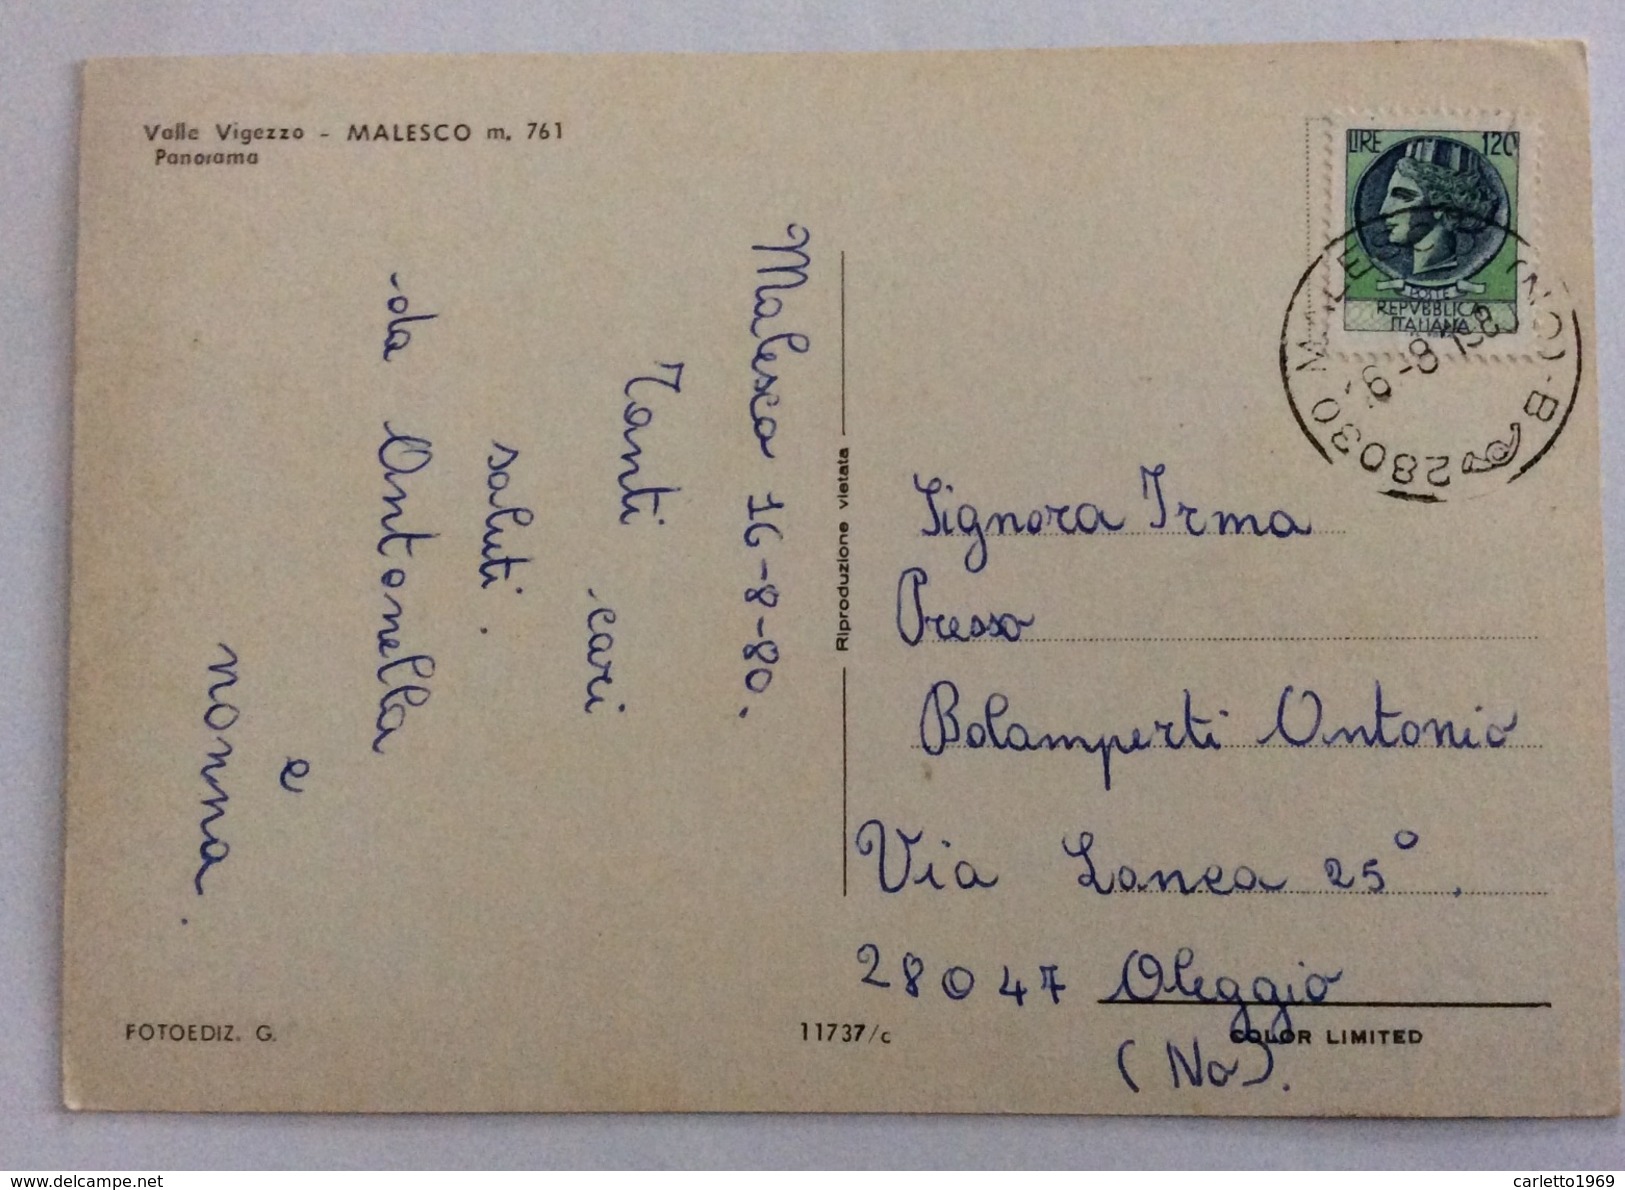 Valle Vigezzo - MALESCO m. 761
Panorama
LIRE 120
POSTE
REPVBBLICA
ITALIANA
28030 (NO) B
Malesco 16-8-80.
Tanti cari
saluti.
da Antonella
e
nonna.
Riproduzione vietata
Signora Irma
Presso
Bolamperti Antonio
Via Lanca 25°.
28047 Oleggio
(No).
FOTOEDIZ. G.
11737/c
COLOR LIMITED
delcampe.net
carletto1969